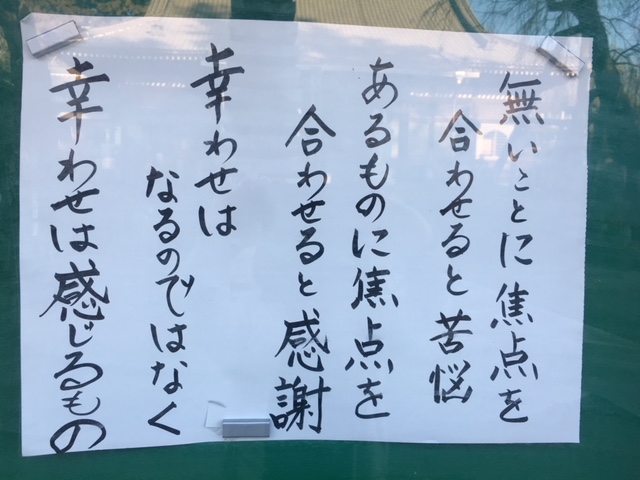 無いことに焦点を
合わせると苦悩
あるものに焦点を
合わせると感謝
幸わせは
なるのではなく
幸わせは感じるもの